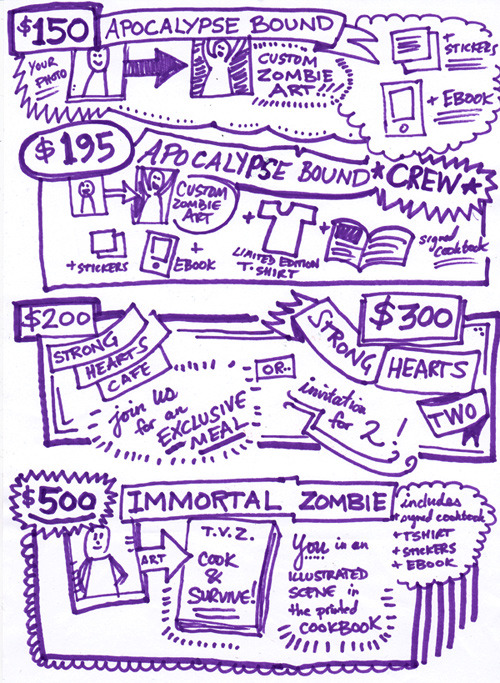 $150 APOCALYPSE BOUND
YOUR
PHOTO
CUSTOM
ZOMBIE
ART!!!
+
STICKERS
+ EBOOK
$195 APOCALYPSE BOUND *CREW*
CUSTOM
ZOMBIE
ART
+ STICKERS
+
EBOOK
+
LIMITED EDITION
T-SHIRT
+
signed
Cookbook
$200
STRONG
HEARTS
CAFE
join us
for an
EXCLUSIVE
MEAL
OR..
$300
STRONG
HEARTS
TWO
invitation
for 2!
$500 IMMORTAL ZOMBIE
ART
T.V.Z.
COOK
&
SURVIVE!
You in an
ILLUSTRATED
SCENE in
the printed
COOKBOOK
includes
signed cookbook
+ TSHIRT
+ STICKERS
+ EBOOK